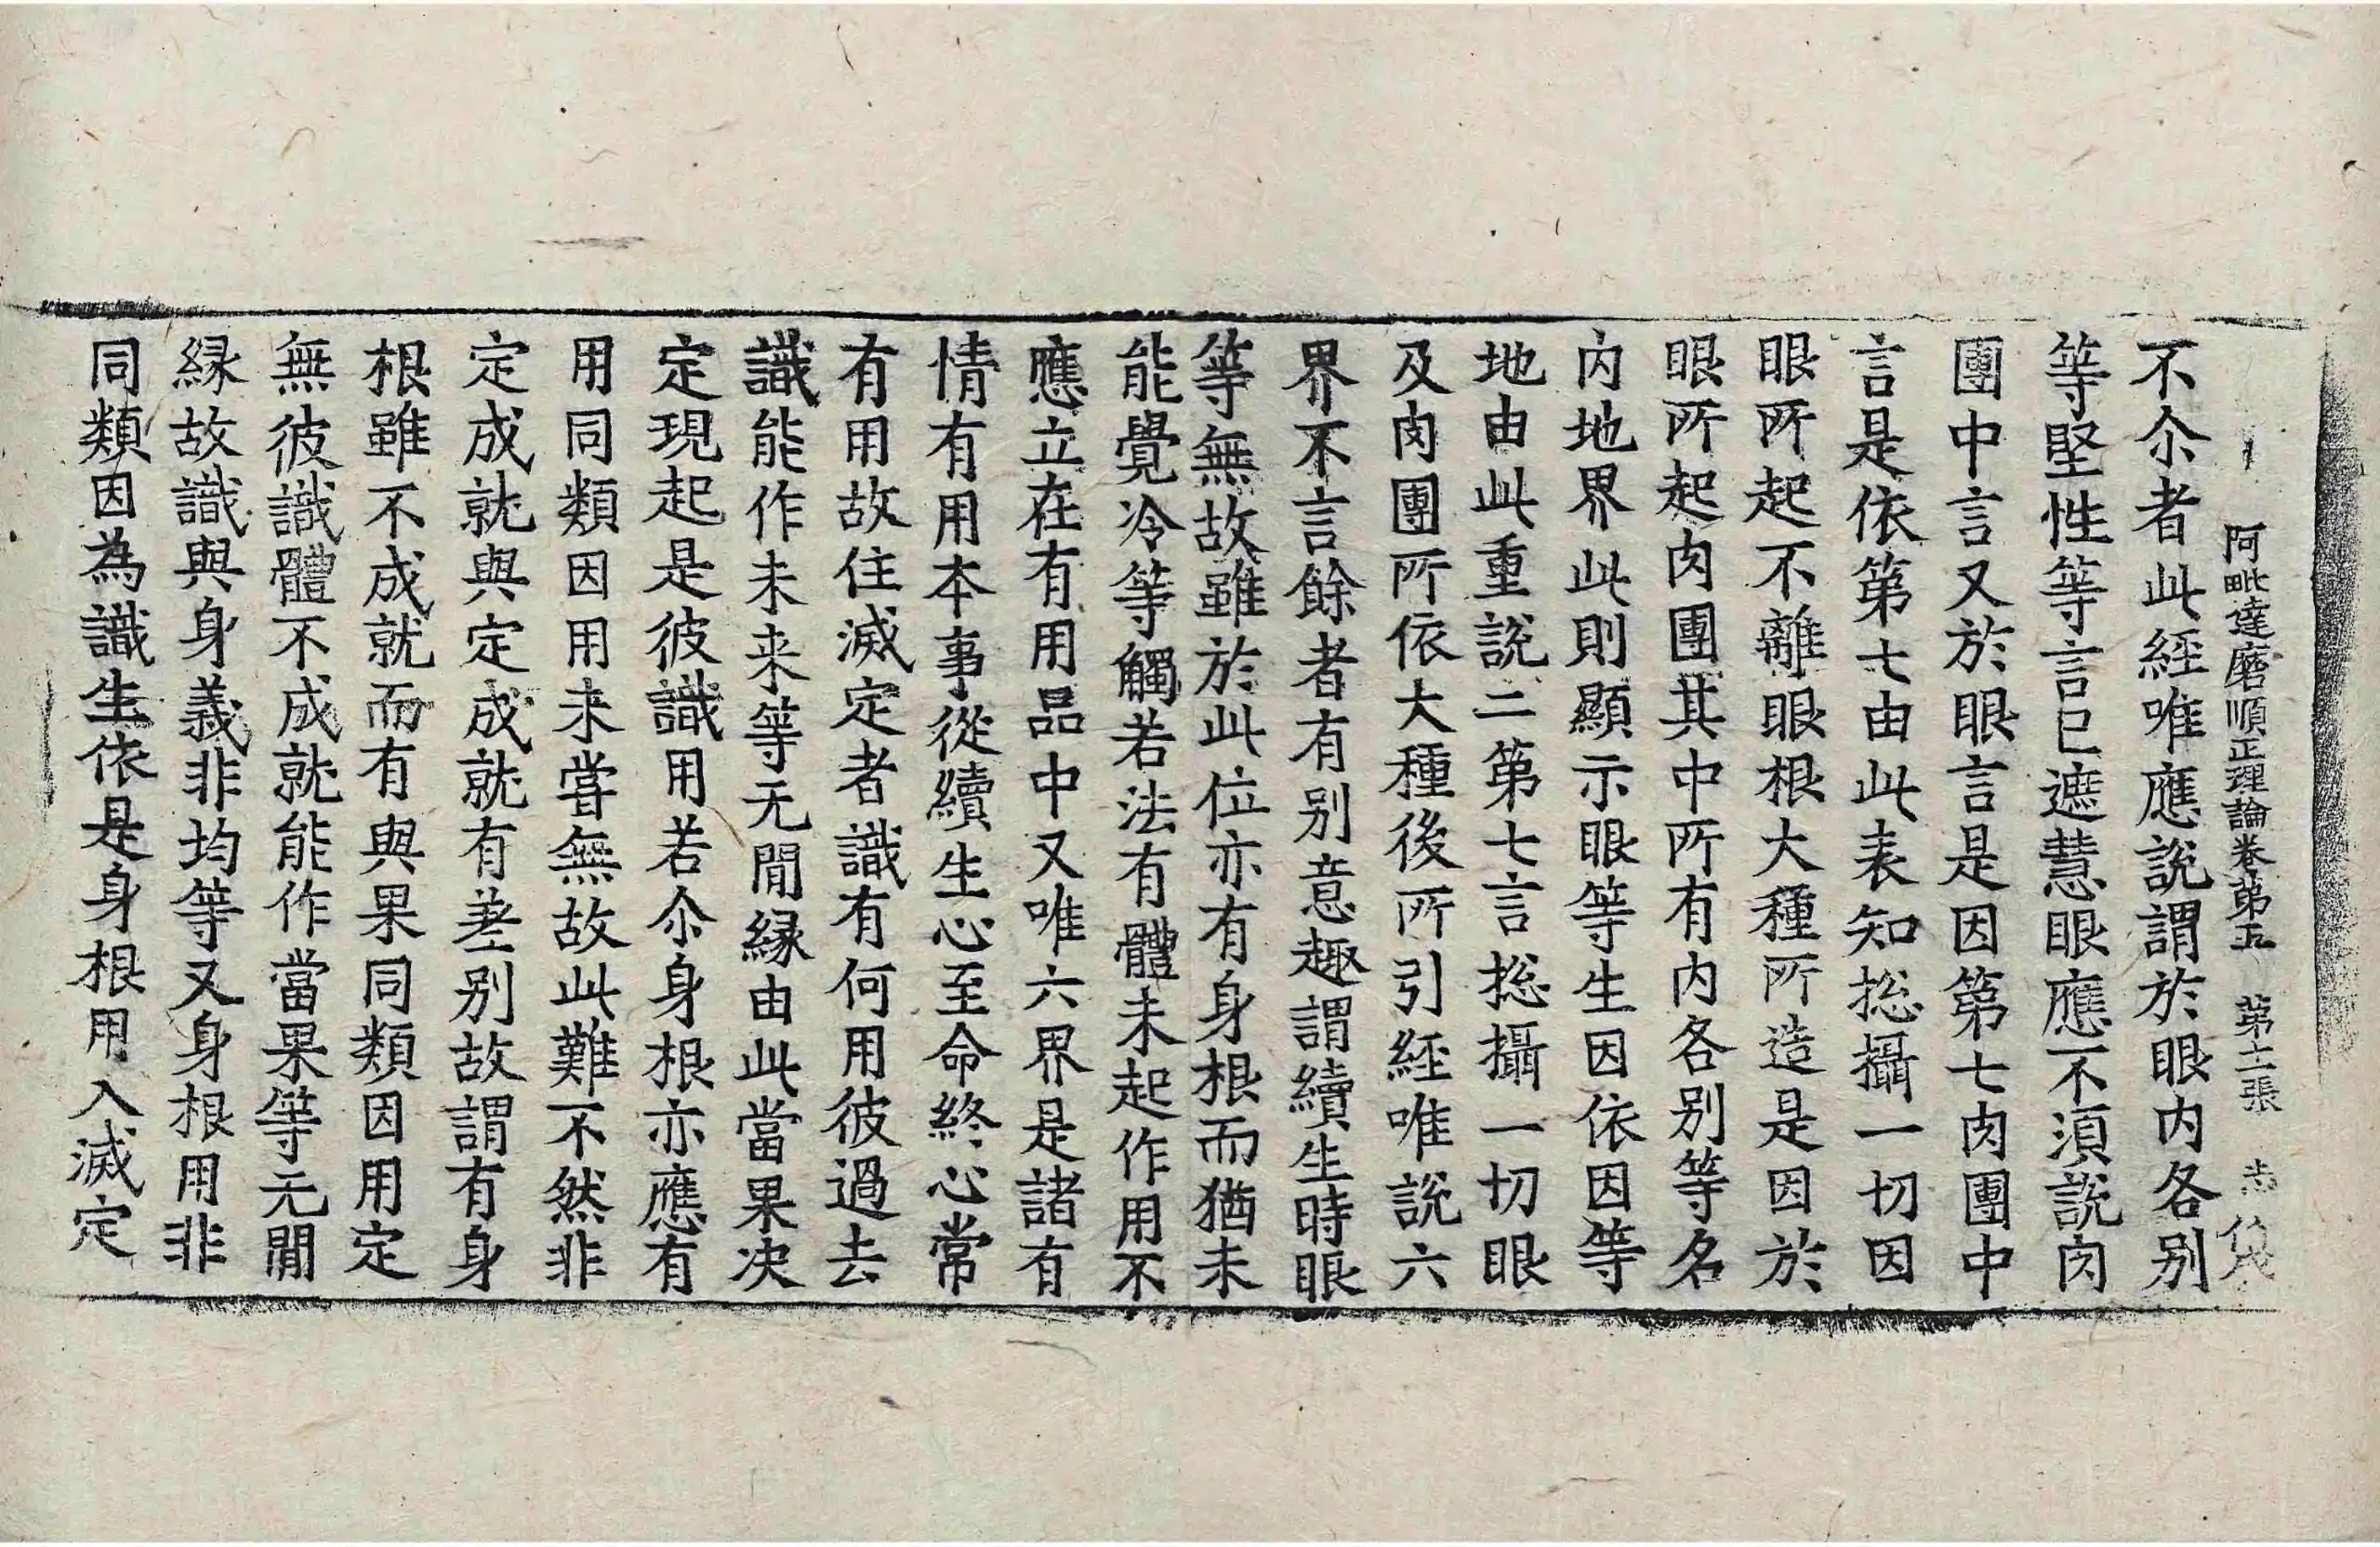 阿毗達磨順正理論卷第五 第十二張 志
不尒者此經唯應說謂於眼內各別
等堅性等言已遮慧眼應不湏說肉
團中言又於眼言是因第七肉團中
言是依第七由此表知捴攝一切因
眼所起不離眼根大種所造是因於
眼所起肉團其中所有內各別等名
內地界此則顯示眼等生因依因等
地由此重說二第七言捴攝一切眼
及肉團所依大種後所引經唯說六
界不言餘者有別意趣謂續生時眼
等無故雖於此位亦有身根而猶未
能覺冷等觸若法有體未起作用不
應立在有用品中又唯六界是諸有
情有用本事從續生心至命終心常
有用故住滅定者識有何用彼過去
識能作未来等无間緣由此當果决
定現起是彼識用若尒身根亦應有
用同類因用未甞無故此難不然非
定成就與定成就有差別故謂有身
根雖不成就而有與果同類因用定
無彼識體不成就能作當果等无間
緣故識與身義非均等又身根用非
同類因為識生依是身根用入滅定